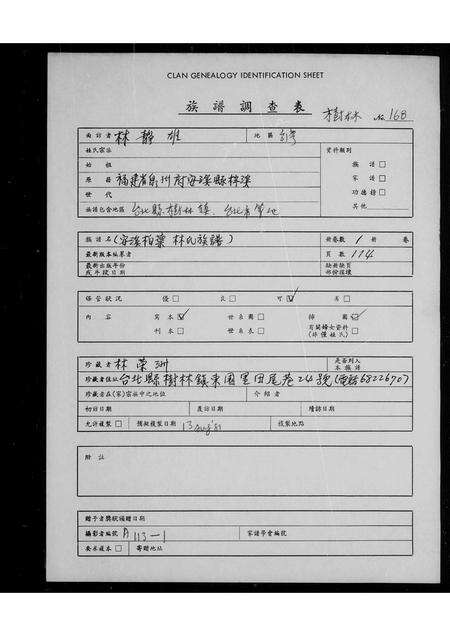 CLAN GENEALOGY IDENTIFICATION SHEET
族譜調查表 樹林 No. 168
面訪者 林靜雄 地區 台灣
姓氏宗法 資料類別
始祖 族譜 □
原籍 福建省泉州府安溪縣林溪 家譜 □
世代 功德錄 □
族譜包含地區 台北縣樹林鎮、台北市等地 其他
族譜名 (安溪柏葉林氏族譜) 冊卷數 1 冊 卷
最新版本編纂者 頁數 114
最新出版年份 缺冊缺頁
或年段日期 部份採購
保管狀況 優 □ 良 □ 可 ☑ 劣 □
內容 寫本 ☑ 世系圖 □ 插圖 ☑
刊本 □ 世系表 □ 有關婦女資料 □
(非僅姓氏)
珍藏者 林榮洲 是否列入
本族譜
珍藏者住址 台北縣樹林鎮東園里田尾巷24號 (電話6822670)
珍藏者在(家)宗族中之地位 介紹者
初訪日期 復訪日期 續訪日期
允許複製 □ 預擬複製日期 13 Aug '81 複製地點
附註
贈予者獎狀捐贈日期
攝影者編號 A 113-1 家譜學會編號
要求複本 □ 寄贈地址